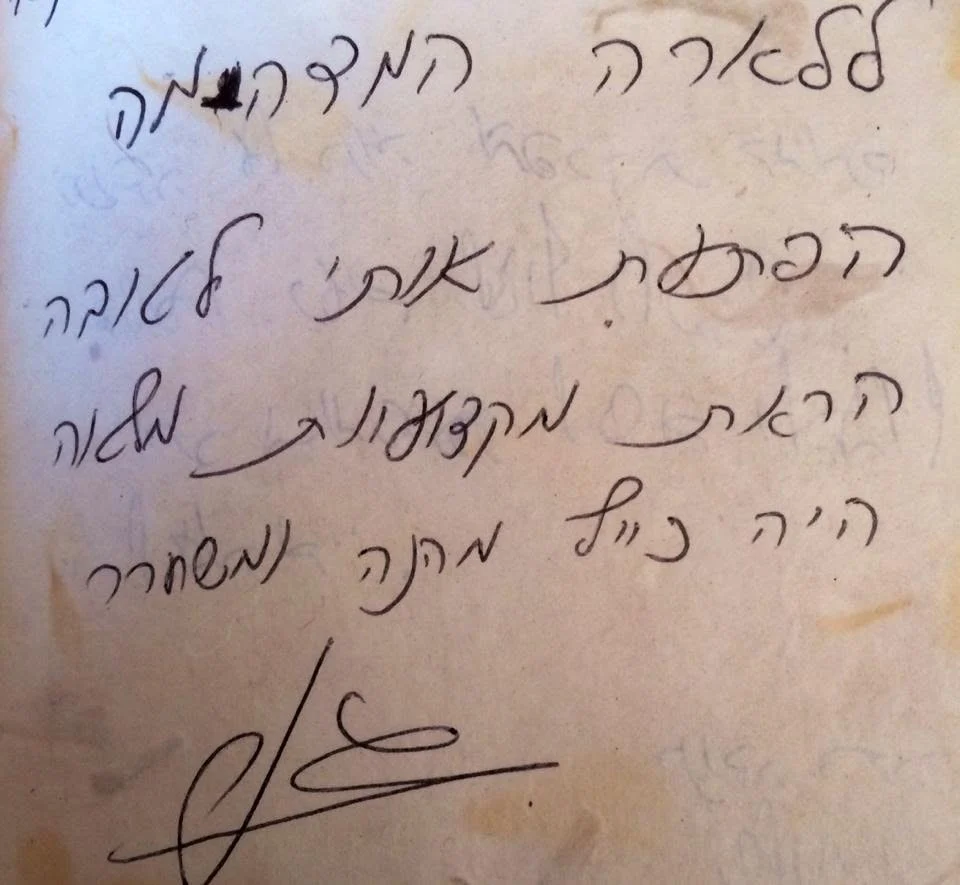 ללארה המדהימה
הפתעת אותי לטובה
הראת מקצועיות מלווה
היה כייף מהנה ומשחרר